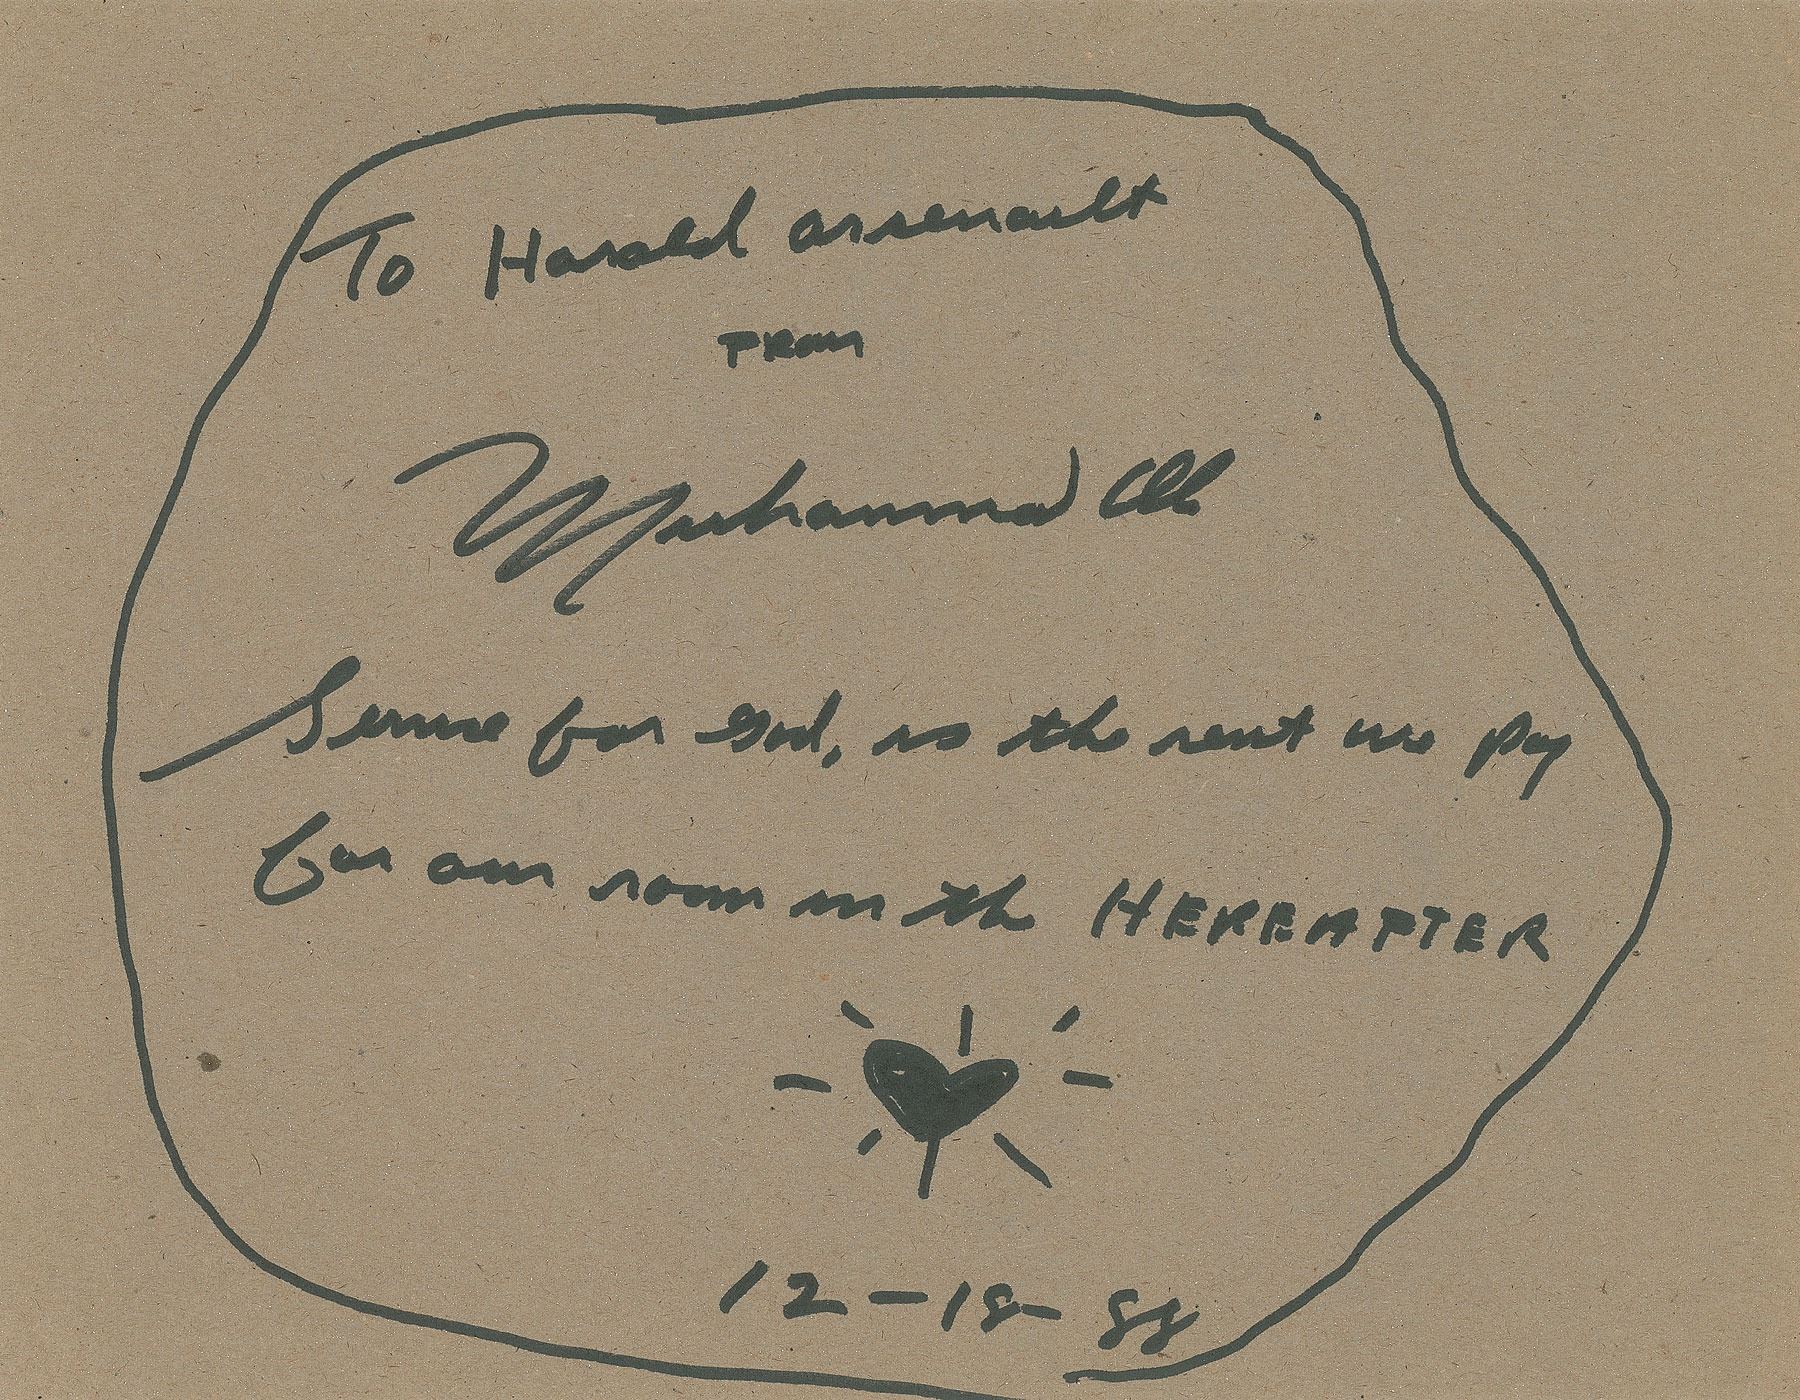 To Harold arsenault
FROM
Muhammad Ali
Service for God, is the rent we pay
for our room in the HEREAFTER
12-18-88